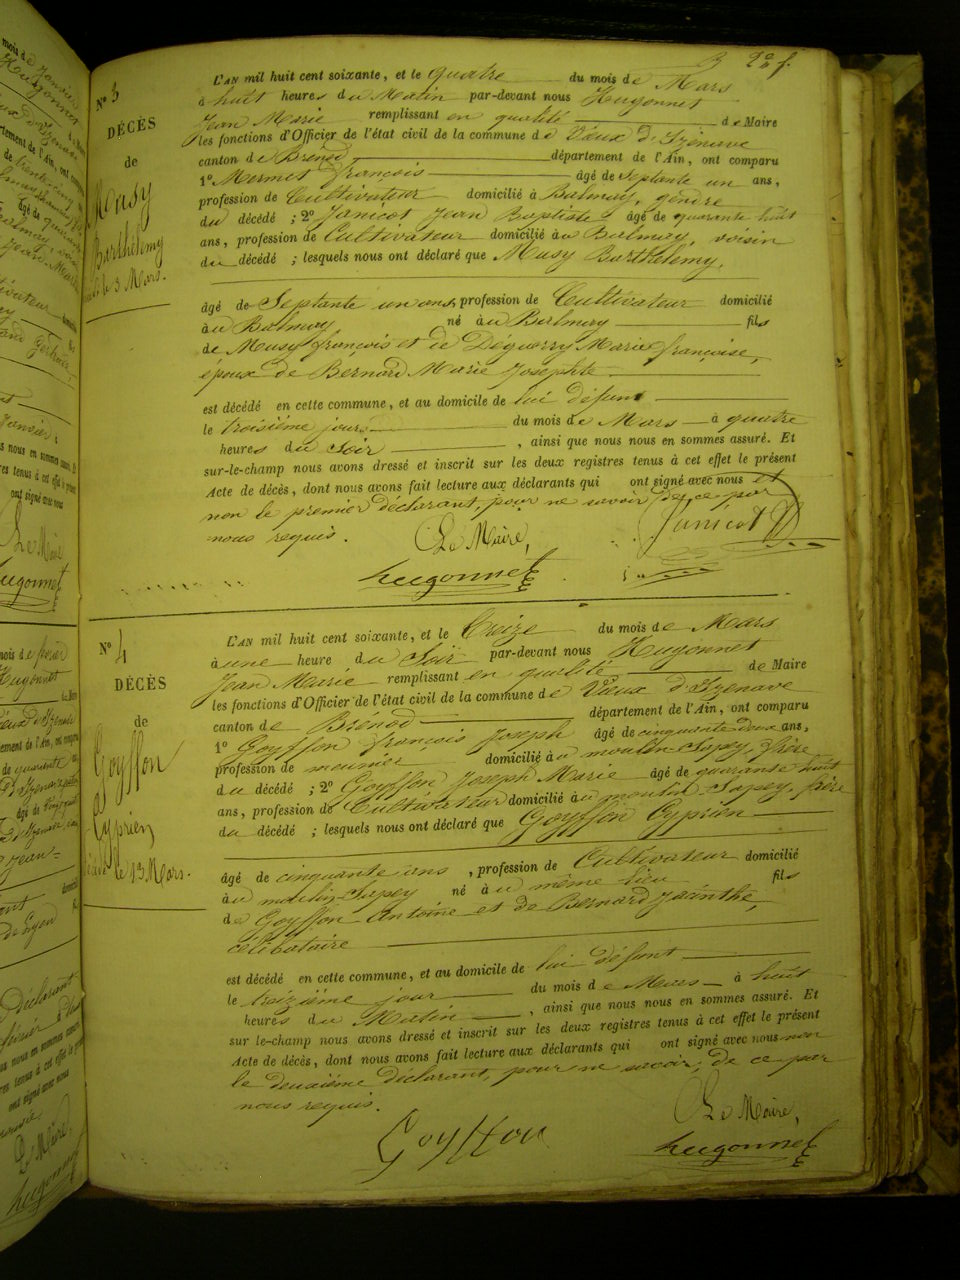 3 2e f.
N° 3
DÉCÈS
de
Musy
Barthélemy
le 3 Mars.
L'AN mil huit cent soixante, et le quatre du mois de Mars
à huit heures du Matin par-devant nous Hugonnet
Jean Marie remplissant en qualité de Maire
les fonctions d'Officier de l'état civil de la commune de Vieux d'Izenave
canton de Brénod, département de l'Ain, ont comparu
1° Mermet françois âgé de septante un ans,
profession de Cultivateur domicilié à Balmay, gendre
du décédé ; 2° Janicot Jean Baptiste âgé de quarante huit
ans, profession de Cultivateur domicilié au Balmay, voisin
du décédé ; lesquels nous ont déclaré que Musy Barthélemy,
âgé de Septante un ans, profession de Cultivateur domicilié
au Balmay né au Balmay fils
de Musy françois et de Deguerry Marie françoise,
époux de Bernard Marie Josephte
est décédé en cette commune, et au domicile de lui défunt
le troisième jour du mois de Mars à quatre
heures du Soir, ainsi que nous nous en sommes assuré. Et
sur-le-champ nous avons dressé et inscrit sur les deux registres tenus à cet effet le présent
Acte de décès, dont nous avons fait lecture aux déclarants qui ont signé avec nous et
non le premier déclarant, pour ne savoir, de ce par
nous requis.
Le Maire,
Janicot
hugonnet
N° 4
DÉCÈS
de
Goyffon
Cyprien
le 13 Mars.
L'AN mil huit cent soixante, et le Treize du mois de Mars
à une heure du Soir par-devant nous Hugonnet
Jean Marie remplissant en qualité de Maire
les fonctions d'Officier de l'état civil de la commune de Vieux d'Izenave
canton de Brénod département de l'Ain, ont comparu
1° Goyffon françois Joseph âgé de cinquante deux ans,
profession de meunier domicilié au moulin Sapey, frère
du décédé ; 2° Goyffon Joseph Marie âgé de quarante huit
ans, profession de Cultivateur domicilié au moulin Sapey, frère
du décédé ; lesquels nous ont déclaré que Goyffon Cyprien
âgé de cinquante ans, profession de Cultivateur domicilié
au moulin Sapey né au même lieu fils
de Goyffon Antoine et de Bernard Jacinthe,
célibataire
est décédé en cette commune, et au domicile de lui défunt
le treizième jour du mois de Mars à huit
heures du Matin, ainsi que nous nous en sommes assuré. Et
sur le-champ nous avons dressé et inscrit sur les deux registres tenus à cet effet le présent
Acte de décès, dont nous avons fait lecture aux déclarants qui ont signé avec nous non
le deuxième déclarant, pour ne savoir, de ce par
nous requis.
Le Maire,
Goyffon
hugonnet